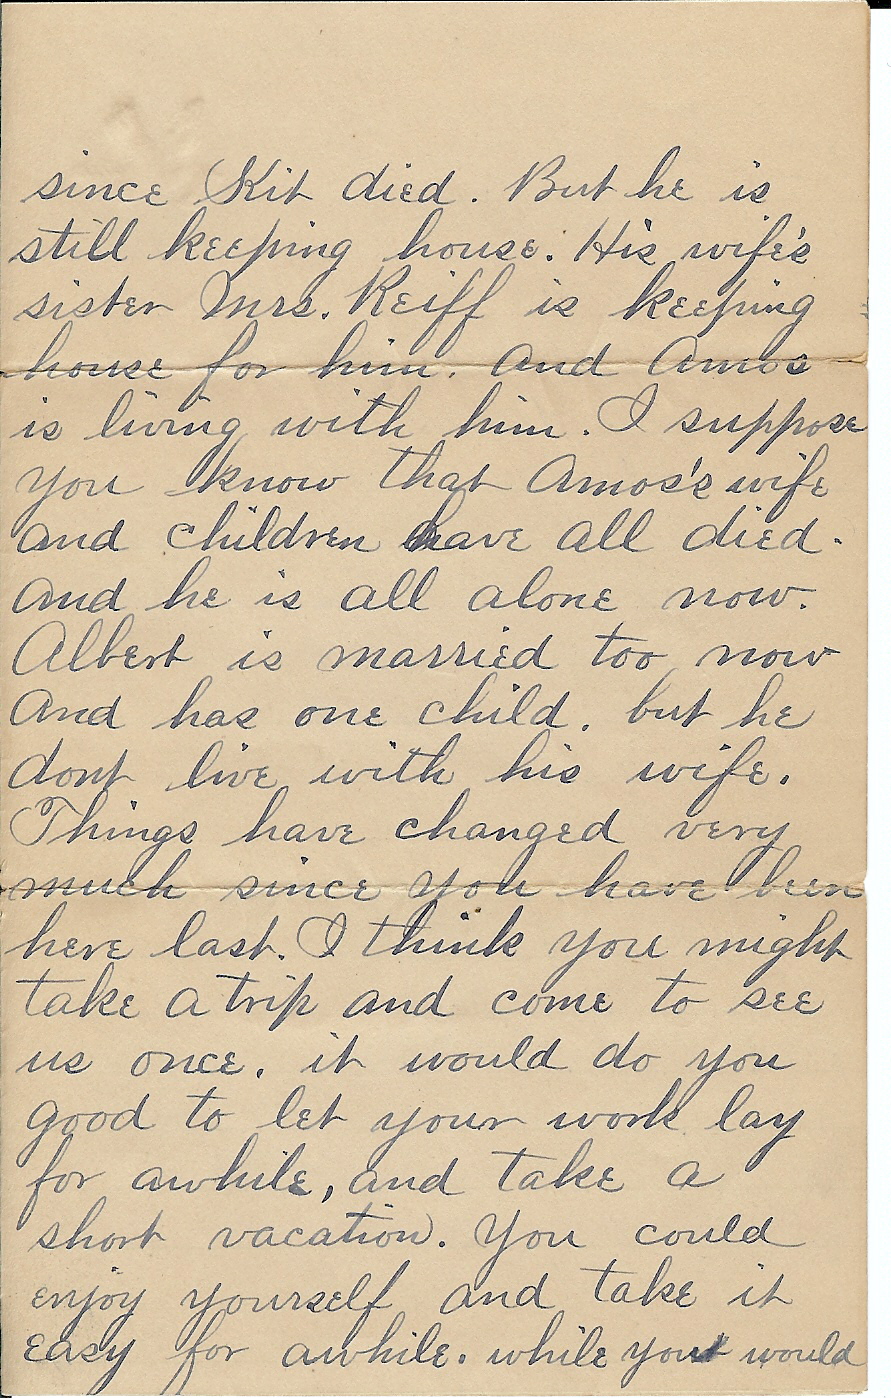 since Kit died. But he is
still keeping house. His wife's
sister Mrs. Reiff is keeping
house for him. And Amos
is living with him. I suppose
you know that Amos's wife
and children have all died.
And he is all alone now.
Albert is married too now
And has one child. but he
dont live with his wife.
Things have changed very
much since you have been
here last. I think you might
take a trip and come to see
us once. it would do you
good to let your work lay
for awhile, and take a
short vacation. You could
enjoy yourself and take it
easy for awhile. while you would